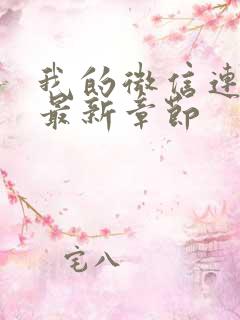 我的微信连
最新章节
宅八